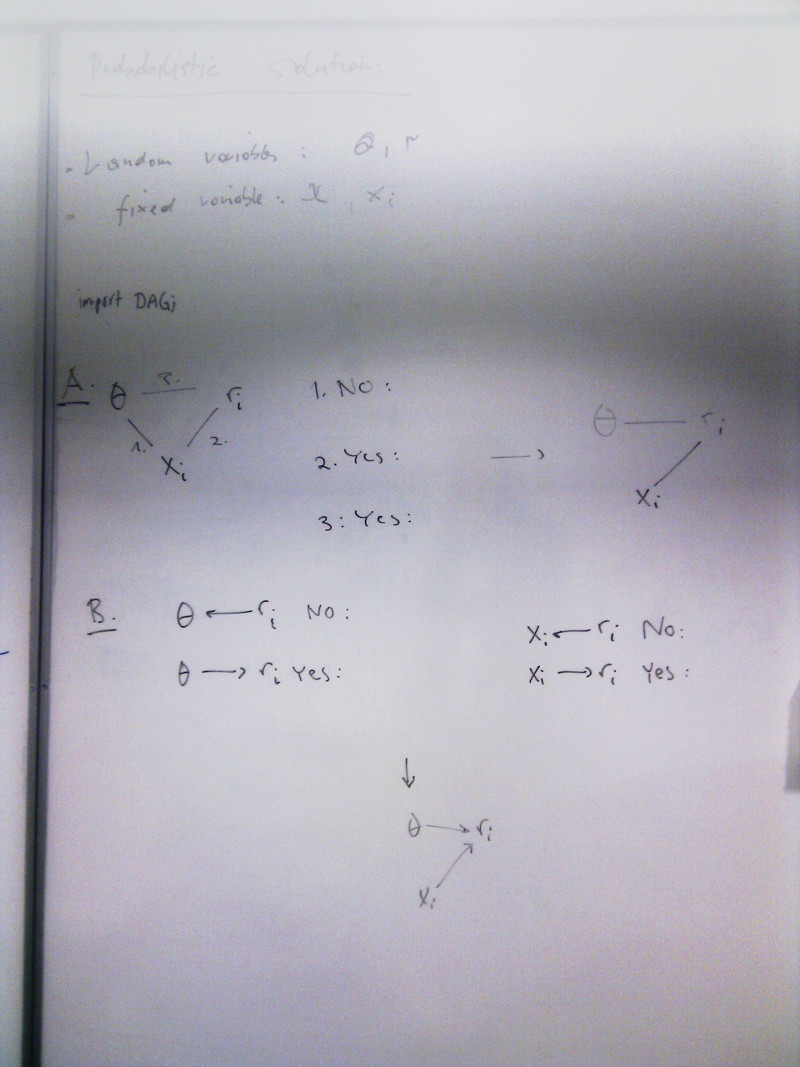 Probabilistic solution:
- Random variables : θ, r
- fixed variable : X, xi
import DAG;
A. θ 3. ri
1. 2.
xi
1. No :
2. Yes : →
3: Yes :
θ — ri
xi
B. θ ← ri No :
θ → ri Yes :
xi ← ri No :
xi → ri Yes :
↓
θ → ri
xi